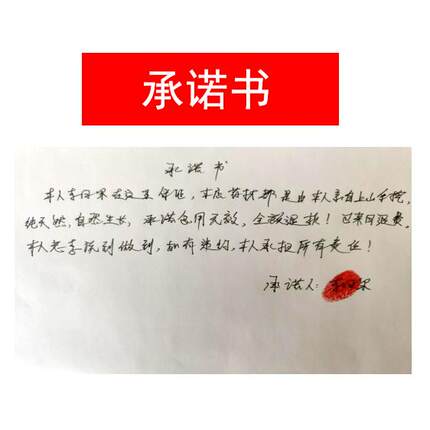 承诺书
承诺书
本人李 在这里保证,本店药材都是由本人亲自上山采挖,
纯天然,自然生长,承诺包用无效,全额退款!回来回运费,
本人 说到做到,如有违约,本人承担所有责任!
承诺人: